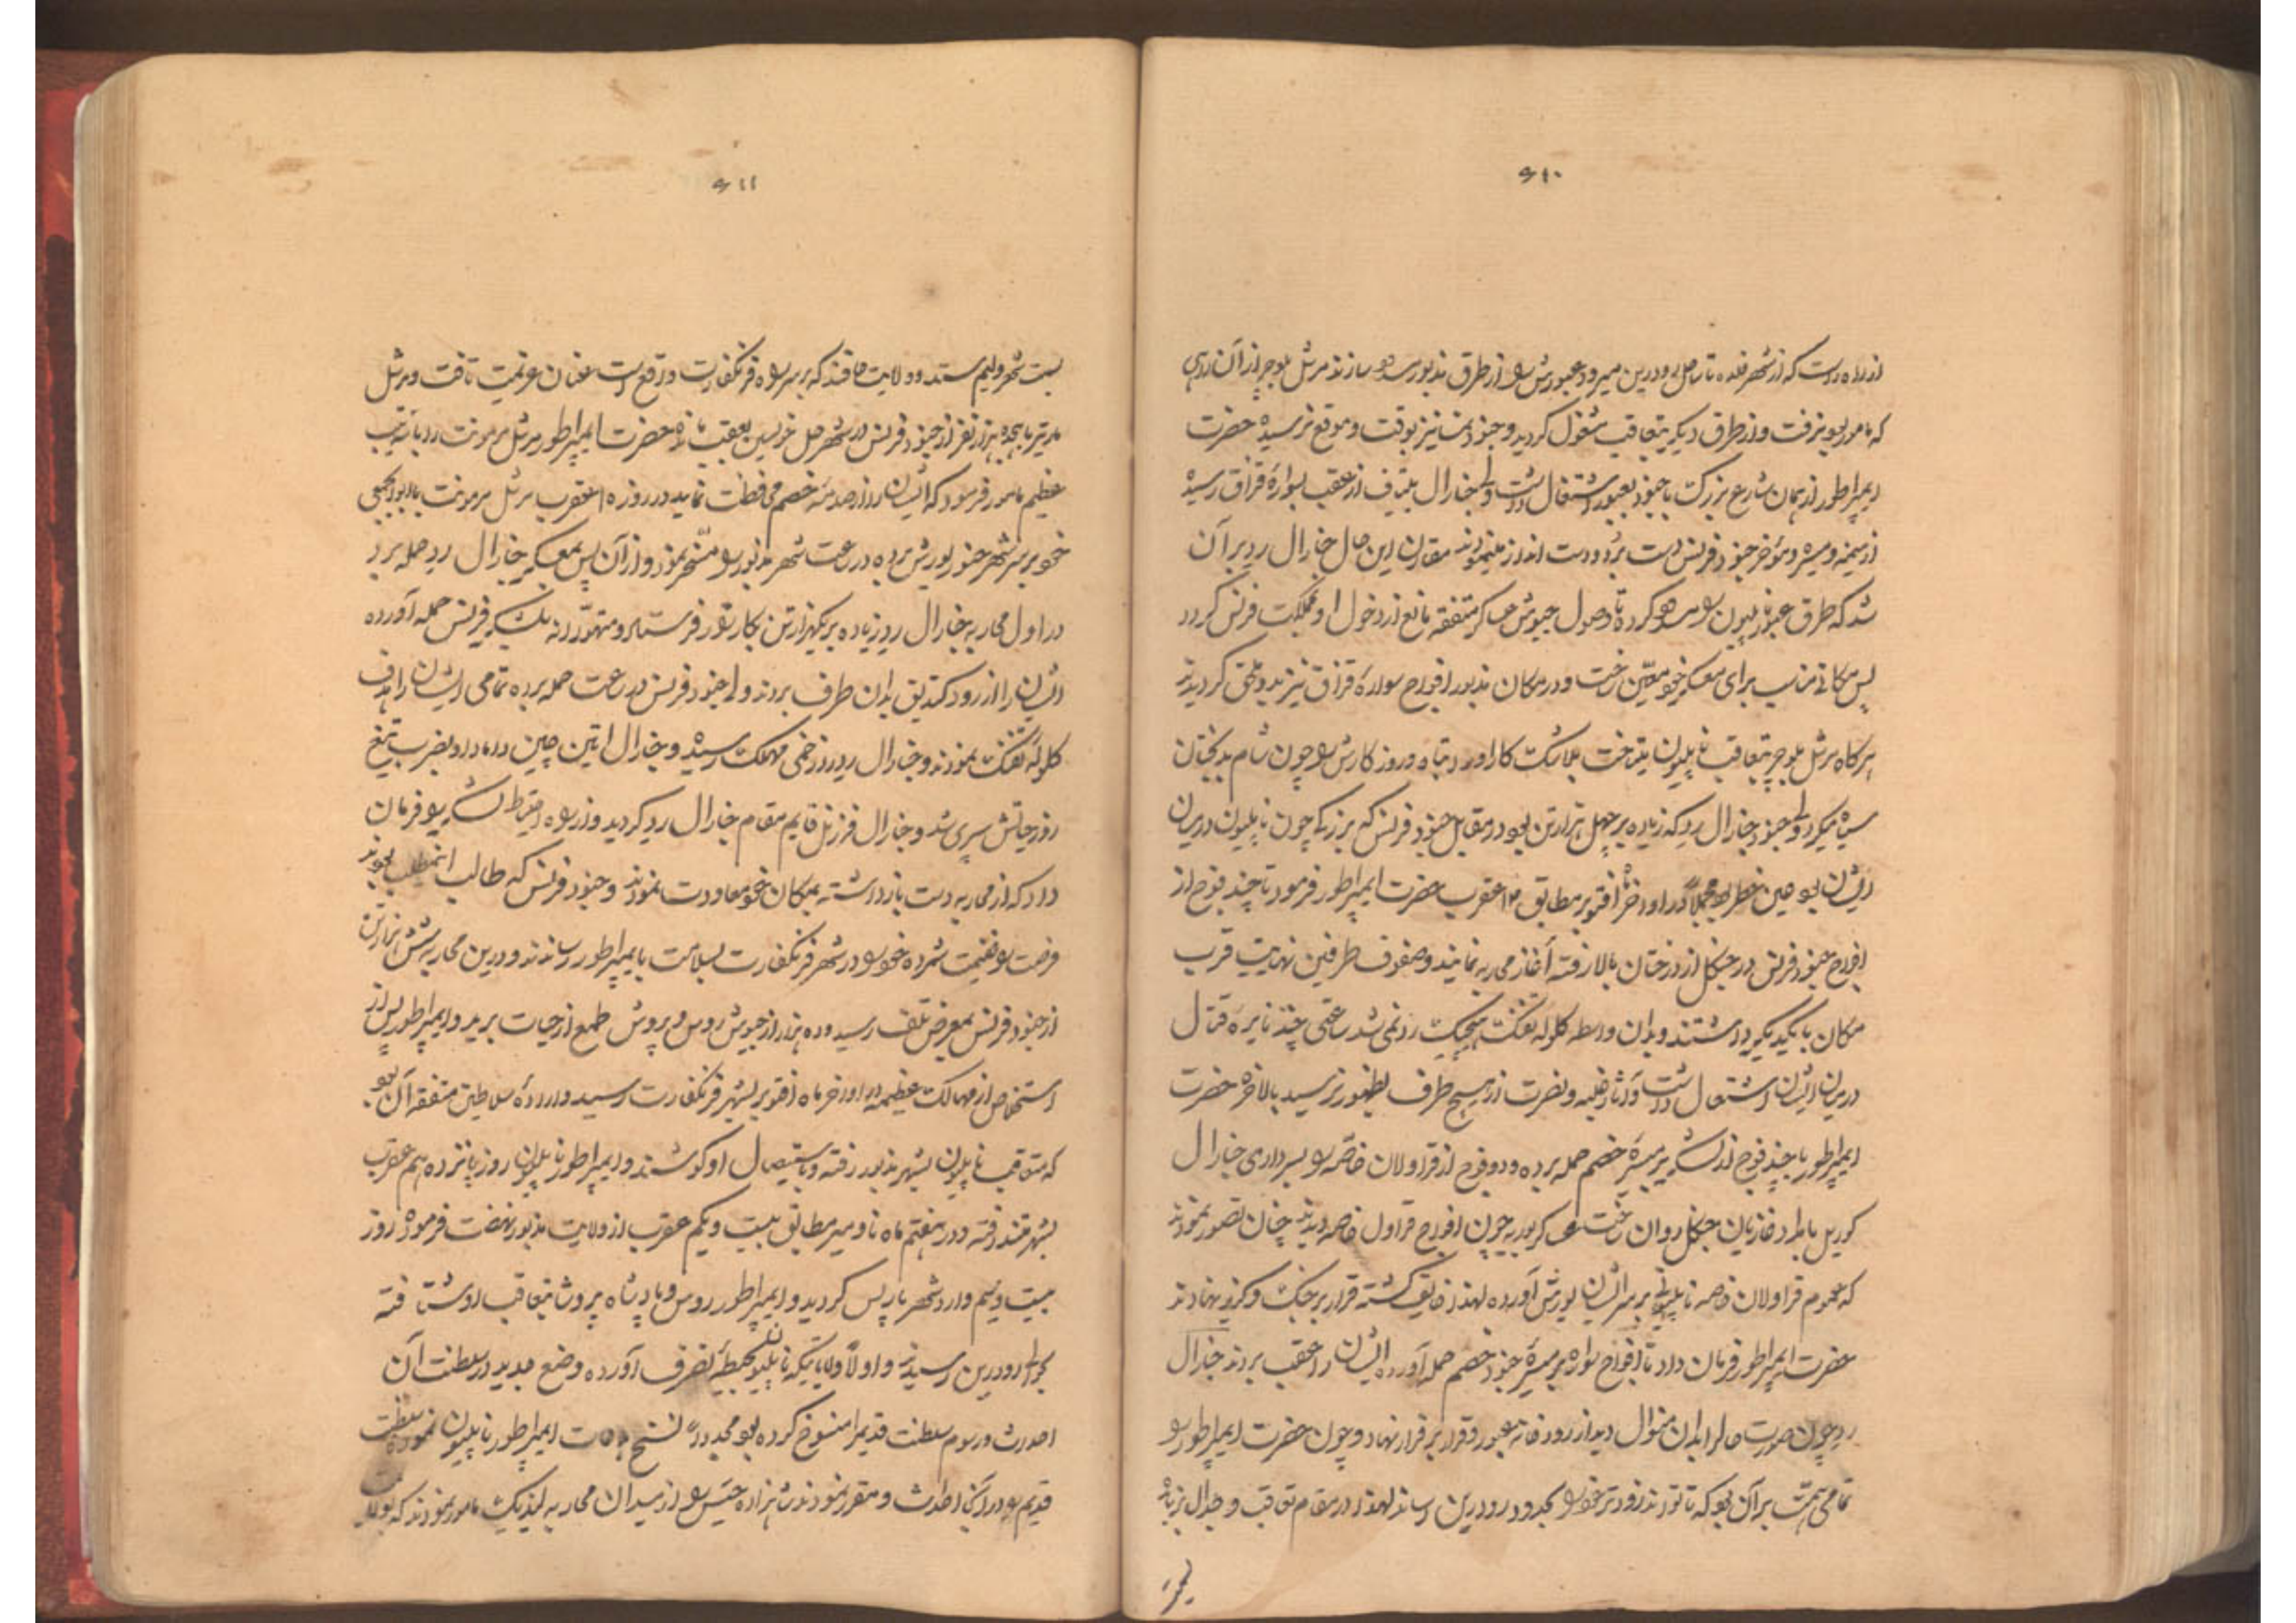 ۶۱۰
از راه راست که از شهر فلده تا ساحل رودرین میرود عبورش را از طرق مذبور سازند مرشل بلوچر از آن راهی
که مامور بود نرفت و از طرق دیگر بتعاقب مشغول گردید و جنود نمسا نیز بوقت و موقع نرسیده حضرت
ایمپراطور از همان شارع بزرگ با جنود بعبور اشتغال داشت ولی جنارال از عقب با سوارهٔ قزاق رسیده
از میمنه و میسره و مؤخر جنود فرنس دست برد و دست انداز مینمودند مقارن این حال جنارال رید بر آن
شد که طرق عبور ناپلیون را سد کرده تا وصول جیوش عساکر متفقه مانع از دخول او بمملکت فرنس گردد
پس مکانی مناسب برای معسکر خود معین ساخت و در مکان مذبور افواج سوارهٔ قزاق نیز بدو ملحق گردیدند
هرگاه مرشل بلوچر بتعاقب ناپلیون میتاخت بلاشک کار او را تباه و روز کارش را چون شام بدبختان
سیاه میکرد ولی جنود جنارال رید که زیاده بر چهل هزار تن بود در مقابل جنود فرنس که بزرگی چون ناپلیون در میان
ایشان بود عین خطر بود مجملاً در اواخر ماه اقتوبر مطابق ۱۳ عقرب حضرت ایمپراطور فرمود تا چند فوج از
افواج جنود فرنس در جنگل از درختان بالا رفته آغاز محاربه نمایند و صفوف طرفین نهایت قرب
مکان با یکدیگر داشتند و بدان واسطه کلوله تفنگ هیچیک رد نمی شد ساعتی چند نایرهٔ قتال
در میان ایشان اشتعال داشت و آثار غلبه و نصرت از هیچ طرف بظهور نرسید بالاخره حضرت
ایمپراطور با چند فوج از لشکر بر میسرهٔ خصم حمله برده و دو فوج از قراولان خاصه را بسرداری جنارال
کوریل بامداد غازیان جنگل روان ساخت عساکر بوریه چون افواج قراول خاصه دیدند چنان تصور نمودند
که عموم قراولان خاصه ناپلیون بر سر ایشان یورش آورده لهذا خایف گشته قرار بر جنگ و گریز نهادند
حضرت ایمپراطور فرمان داد تا افواج سواره بر میسرهٔ جنود خصم حمله آورده ایشان را عقب بردند جنارال
رید چون صورت حال را بدان منوال دید از رودخانه عبور و قرار بر فرار نهاد و چون حضرت ایمپراطور را
تمامی همت بر آن بود که تا تواند زودتر خود را بحدود رودرین رساند لهذا در مقام تعاقب و جدال نبوده
۶۱۱
بسمت شهر ولیم ستد و ولایت که بر سر راه فرنکفارت واقع است عنان عزیمت تافت و مرشل
مارتیر با هجده هزار نفر از جنود فرنس در شهر بعقب مانده حضرت ایمپراطور مرشل مرمونت را با ترتیب
عظیم مامور فرمود که ایشان را از صدمه خصم محافظت نماید در روز ۱۵ عقرب مرشل مرمونت
خود بر سر شهر یورش برده در ساعت شهر مذبور را مسخر نمود و از آن پس بمعسکر جنارال رید حمله برد
در اول محاربه جنارال رید زیاده بر یکهزار تن بکارزار فرستاد و متهورانه بلشکر فرنس حمله آورده
ایشان را از رود بدان طرف بردند ولی جنود فرنس در ساعت حمله برده تمامی ایشان را هدف
کلوله تفنگ نمودند و جنارال رید را زخمی مهلک رسید و جنارال اتین چین داماد او بضرب تیغ
روز حیاتش سپری شد و جنارال فرزنل قایم مقام جنارال رید گردید و از راه احتیاط لشکر را فرمان
داد که از محاربه دست باز داشته بمکان خود معاودت نمودند و جنود فرنس که طالب این مطلب بودند
فرصت را غنیمت شمرده خود را در شهر فرنکفارت بسلامت بایمپراطور رساندند و درین محاربه شش هزار تن
از جنود فرنس بمعرض تلف رسید و ده هزار از جیوش روس و پروش طمع از حیات برید و ایمپراطور پس از
استخلاص از مهالک عظیمه در اواخر ماه اقتوبر بشهر فرنکفارت رسید و ارادهٔ سلاطین متفقه آن بود
که متعاقب ناپلیون بشهر مذبور رفته و باستیصال او کوشند و ایمپراطور ناپلیون روز پانزدهم عقرب
بشهر متز رفته و در هفتم ماه ناومبر مطابق بیست و یکم عقرب از ولایت مذبور نهضت فرموده روز
بیست و نهم وارد شهر پاریس گردید و ایمپراطور روس و پادشاه پروشا بتعاقب او شتافته
بحوالی رودرین رسیدند و اولاً ولایاتیکه ناپلیون بحیطهٔ تصرف آورده وضع جدید در سلطنت آن
احداث و رسوم سلطنت قدیم را منسوخ کرده بود مجدداً نسخ ایمپراطور ناپلیون نموده سلطنت
قدیم را در آن احداث و مقرر نمودند شاهزاده را از میدان محاربه لیپزیک مامور نمودند که بولایت